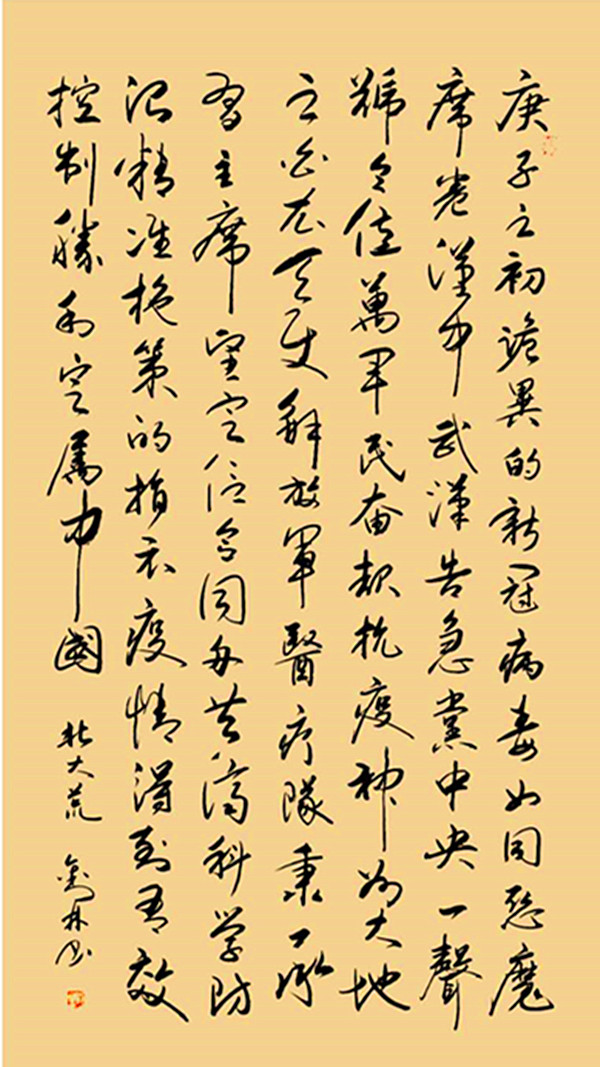 庚子之初诡異的新冠病毒如同恶魔
席卷漢中武漢告急黨中央一聲
號令億萬军民奋起抗疫神州大地
之白衣天使解放軍醫疗隊秉承
習主席坚定信念同舟共济科学防
治精准施策的指示疫情得到有效
控制勝利定属中國
北大荒 林书